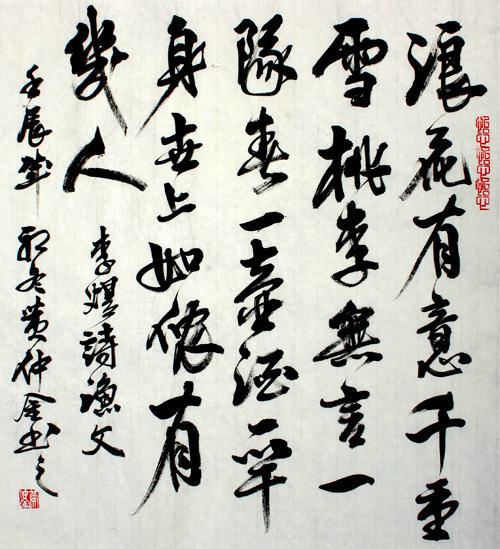 浪花有意千重
雪桃李無言一
隊春一壺酒一竿
身世上如儂有
幾人
李煜詩漁父
壬辰年初冬仲金书之